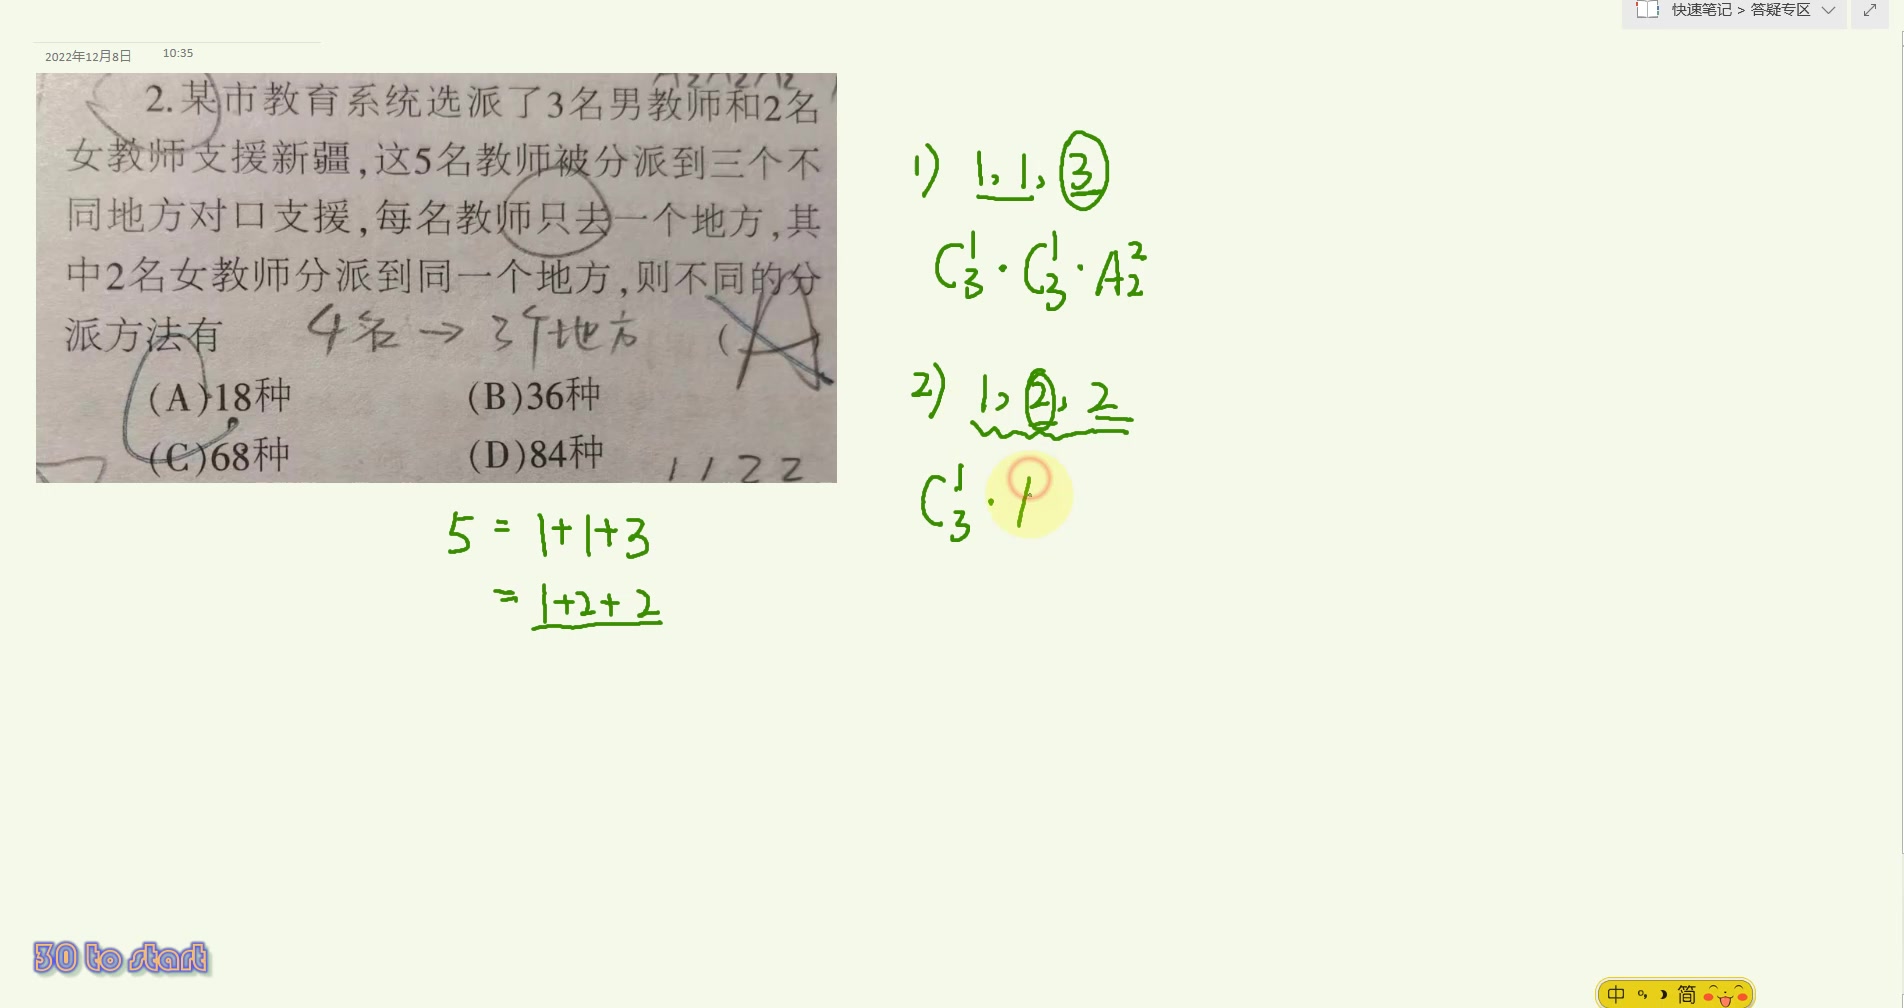 快速笔记 > 答疑专区
2022年12月8日 10:35
2.某市教育系统选派了3名男教师和2名
女教师支援新疆,这5名教师被分派到三个不
同地方对口支援,每名教师只去一个地方,其
中2名女教师分派到同一个地方,则不同的分
派方法有 4名→3个地方 ( A )
(A)18种 (B)36种
(C)68种 (D)84种
1 1 2 2
5 = 1+1+3
= 1+2+2
1) 1, 1, 3
C₃¹ · C₃¹ · A₂²
2) 1, 2, 2
C₃¹ ·
30 to start
中 简